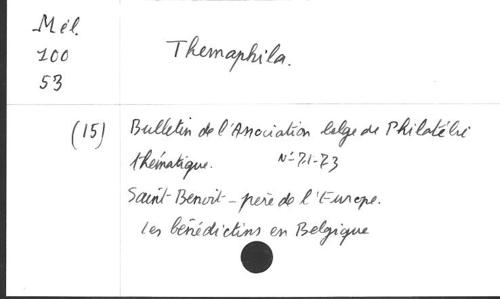 Mél.
100
53
Themaphila.
(15) Bulletin de l'Association belge de Philatélie
thématique. N° 71-73
Saint-Benoit - père de l'Europe.
Les bénédictins en Belgique